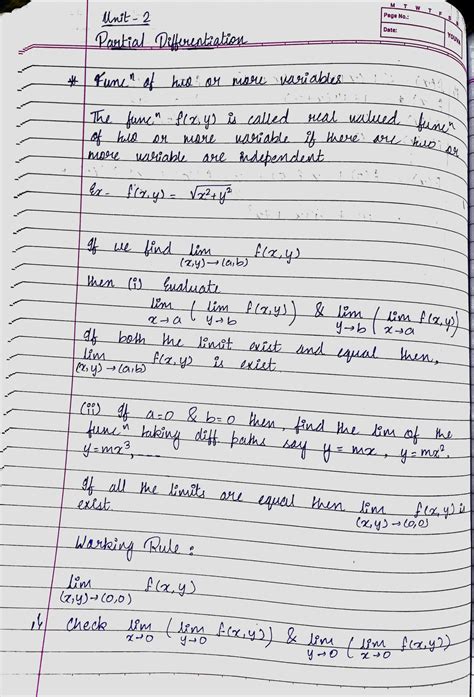 M T W T F S
Page No.:
Date:
YOUVA
Unit - 2
Partial Differentiation
* Funcⁿ of two or more variables
The funcⁿ f(x,y) is called real valued funcⁿ
of two or more variable if there are two or
more variable are independent
Ex- f(x,y) = √x²+y²
If we find lim (x,y)→(a,b) f(x,y)
then (i) Evaluate
lim x→a ( lim y→b f(x,y)) & lim y→b ( lim x→a f(x,y)
If both the limit exist and equal then,
lim (x,y)→(a,b) f(x,y) is exist
(ii) If a=0 & b=0 then, find the lim of the
funcⁿ taking diff paths say y = mx, y=mx²,
y=mx³, ----
If all the limits are equal then lim (x,y)→(0,0) f(x,y) is
exist.
Working Rule:
lim (x,y)→(0,0) f(x,y)
Check lim x→0 ( lim y→0 f(x,y)) & lim y→0 ( lim x→0 f(x,y))